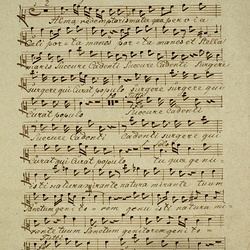 Alma redemptoris mater quae pervia
Celi porta manes porta manes et Stella
maris Succure Cadenti Succure Cadenti Surgere
Surgere qui Curat populo surgere surgere qui
Curat populo Succure Cadenti
Succure Cadenti Cadenti surgere qui
Curat qui Curat populo Tu quae geni-
isti natura mirante natura mirante tuum
Sanctum genitorem genui sti natura mi-
rante tuum Sanctum genitorem genito-